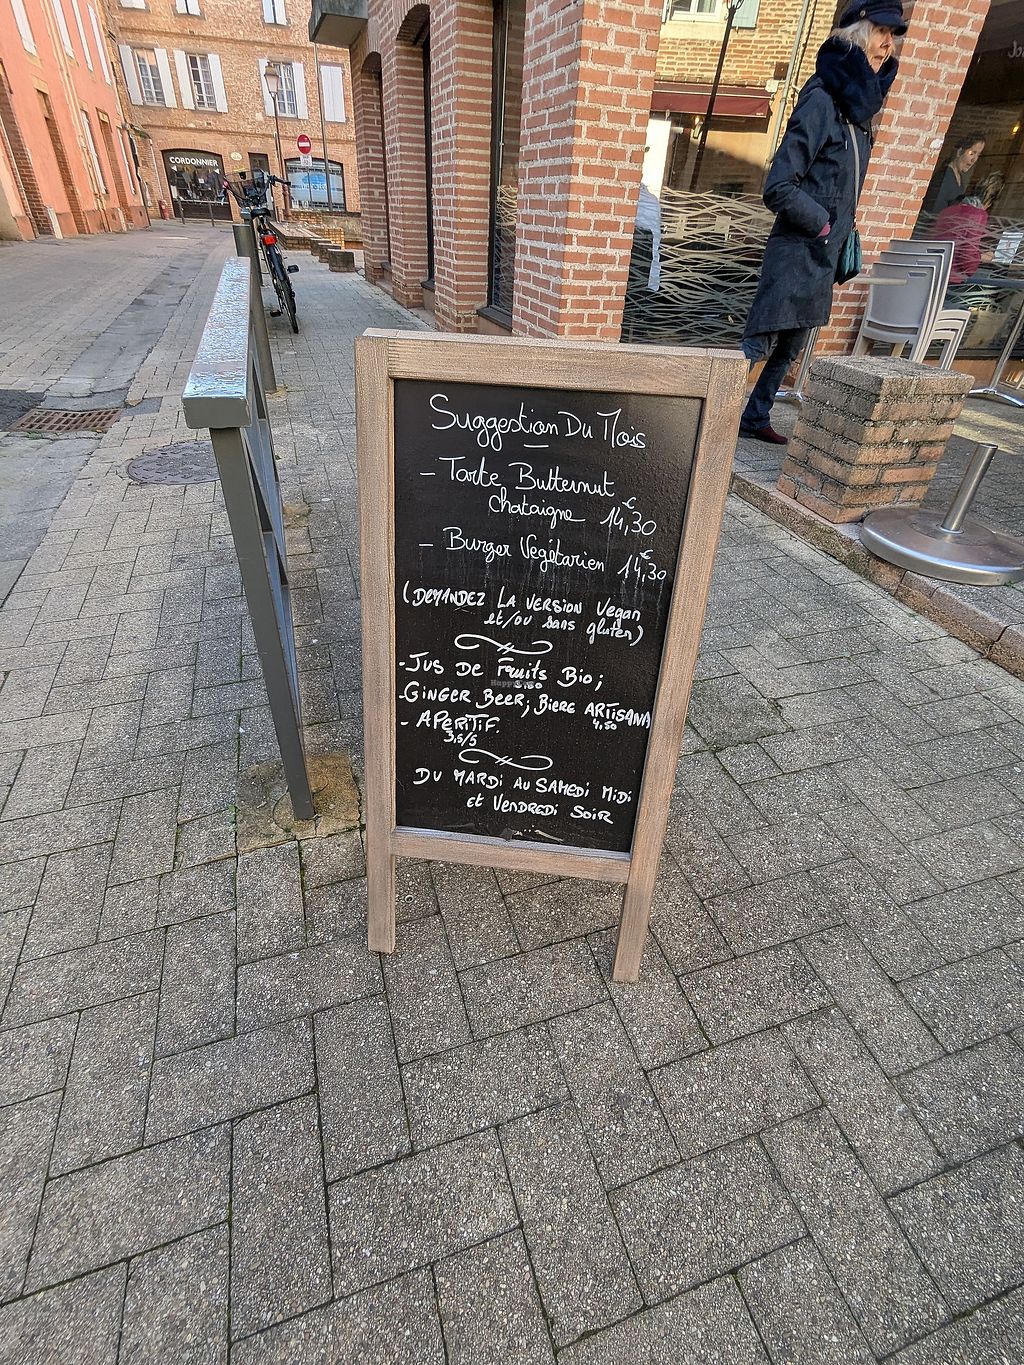 CORDONNIER
Suggestion Du Mois
- Tarte Butternut
Chataigne 14,30 €
- Burger Végétarien 14,30 €
(DEMANDEZ LA VERSION Vegan
et/ou sans gluten)
- JUS DE Fruits Bio;
- GINGER BEER; BIERE ARTISANA
4,50
- APERITIF.
3,5/5
DU MARDI AU SAMEDI MIDI
et VENDREDI SOIR